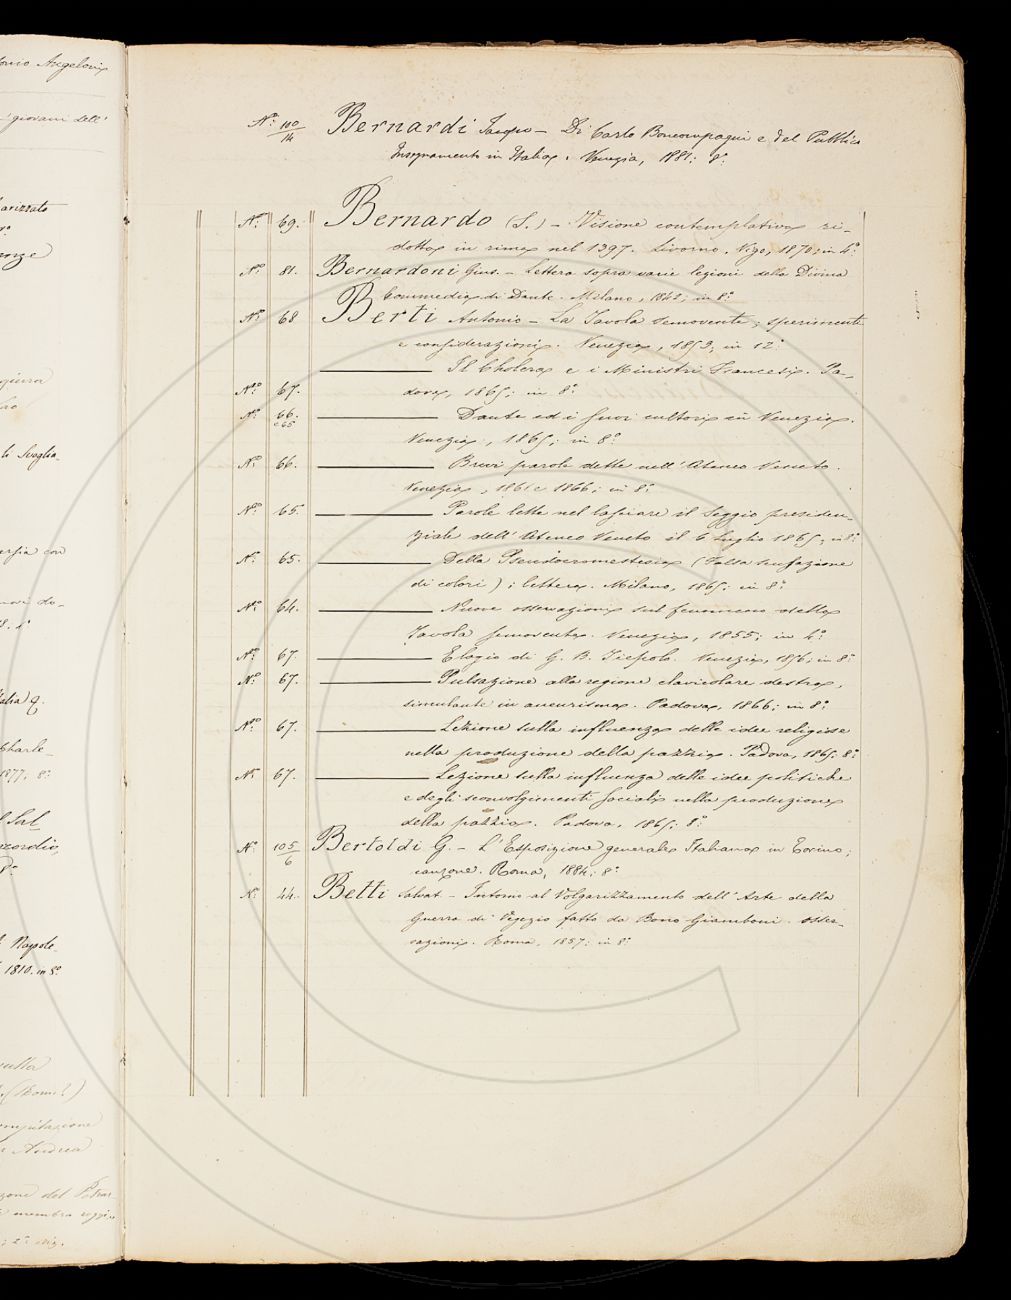 onio Angeloni
giovani dell'
arizzato
enze
giura
li Sveglia
ersia con
Italia q.
Charle
1877, 8º
Sal
8º
Napole
1810. in 8º
ulla
(Rom.)
Andrea
zione del Petrar-
; 2ª ediz.
Nº 100/14 Bernardi Jacopo – Di Carlo Boncompagni e del Pubblico
Insegnamento in Italia. Venezia, 1881; 8º
Nº 69. Bernardo (S.) – Visione contemplativa ri-
dotta in rima nel 1397. Livorno, Vigo, 1870; in 4º
Nº 81. Bernardoni Gius. – Lettera sopra varie lezioni della Divina
Commedia di Dante. Milano, 1842; in 8º
Nº 68 Berti Antonio – La Tavola semovente; sperimenti
e considerazioni. Venezia, 1853; in 12º
Il Cholera e i Ministri Francesi. Pa-
Nº 67. dova, 1865; in 8º
Nº 66. e 65 Dante ed i suoi cultori in Venezia.
Venezia, 1865; in 8º
Nº 66. Brevi parole dette nell'Ateneo Veneto.
Venezia, 1861 e 1866; in 8º
Nº 65. Parole lette nel lasciare il Seggio presiden-
ziale dell'Ateneo Veneto il 6 Luglio 1865; in 8º
Nº 65. Della Pseudocromestesia (Falsa sensazione
di colori); lettera. Milano, 1865; in 8º
Nº 64. Nuove osservazioni sul fenomeno della
Tavola semovente. Venezia, 1855; in 4º
Nº 67. Elogio di G. B. Tiepolo. Venezia, 1856; in 8º
Nº 67. Pulsazione alla regione clavicolare destra,
simulante un aneurisma. Padova, 1866; in 8º
Nº 67. Lezione sulla influenza delle idee religiose
nella produzione della pazzia. Padova, 1865; 8º
Nº 67. Lezione sulla influenza delle idee politiche
e degli sconvolgimenti sociali nella produzione
della pazzia. Padova, 1865; 8º
Nº 105/6 Bertoldi G. – L'Esposizione generale Italiana in Torino;
canzone. Roma, 1884; 8º
Nº 44. Betti Salvat. – Intorno al Volgarizzamento dell'Arte della
Guerra di Vegezio fatto da Bono Giamboni. Osser-
vazioni. Roma, 1857; in 8º